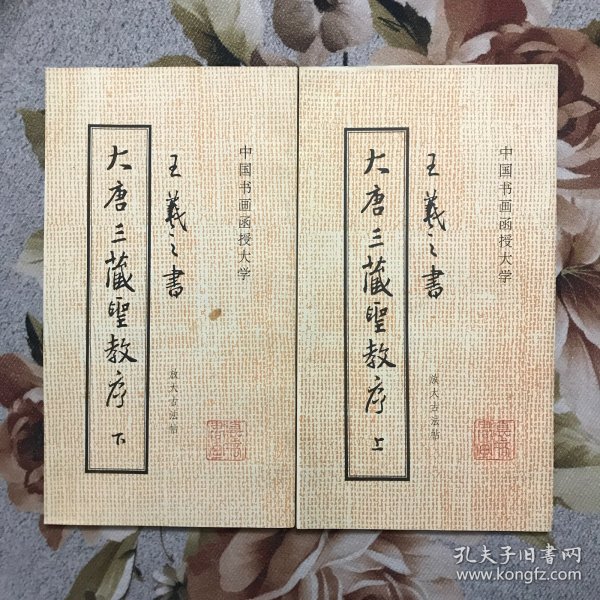 中国书画函授大学
王羲之书
大唐三藏聖教序 下
放大古法帖
中国书画函授大学
王羲之书
大唐三藏聖教序 上
放大古法帖
孔夫子旧书网
www.kongfz.com